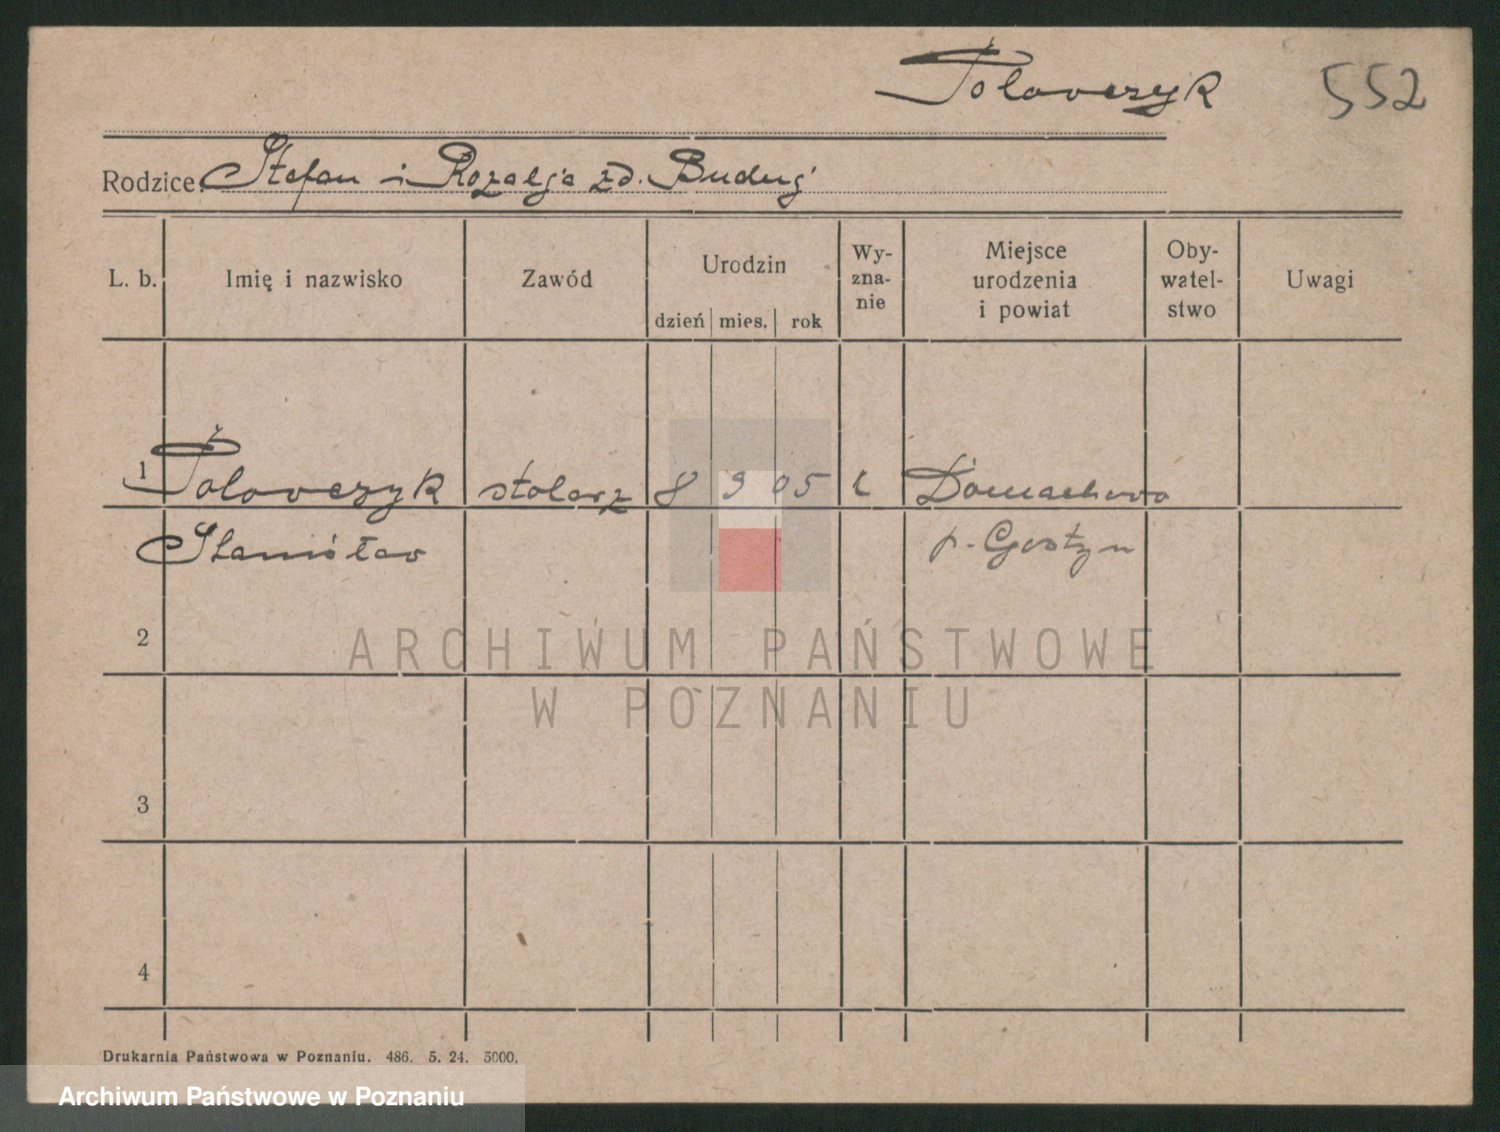 Polowczyk 552
Rodzice Stefan i Rozalja zd.
L. b. Imię i nazwisko Zawód Urodzin Wy-zna-nie Miejsce urodzenia i powiat Oby-watel-stwo Uwagi
dzień mies. rok
1 Polowczyk stolarz 8 9 05 k Domachowo
Stanisław p. Gostyn
2
ARCHIWUM PAŃSTWOWE
W POZNANIU
3
4
Drukarnia Państwowa w Poznaniu. 486. 5. 24. 5000.
Archiwum Państwowe w Poznaniu